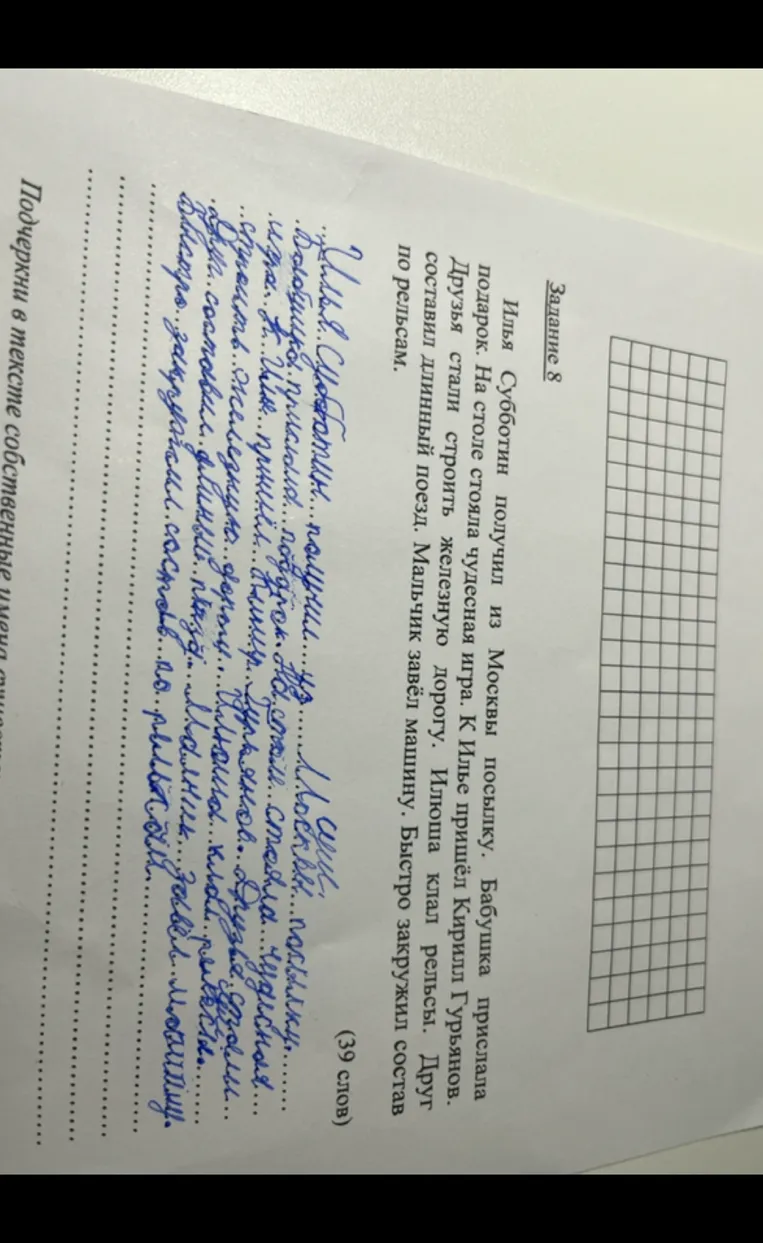 Задание 8
Илья Субботин получил из Москвы посылку. Бабушка прислала
подарок. На столе стояла чудесная игра. К Илье пришёл Кирилл Гурьянов.
Друзья стали строить железную дорогу. Илюша клал рельсы. Друг
составил длинный поезд. Мальчик завёл машину. Быстро закружил состав
по рельсам.
(39 слов)
Илья получил из Москвы посылку.
подарок. На столе стояла чудесная
игра. К пришёл Друзья стали
строить железную дорогу. Илюша клал рельсы.
Друг составил поезд. завёл машину.
состав по
Подчеркни в тексте собственные имена